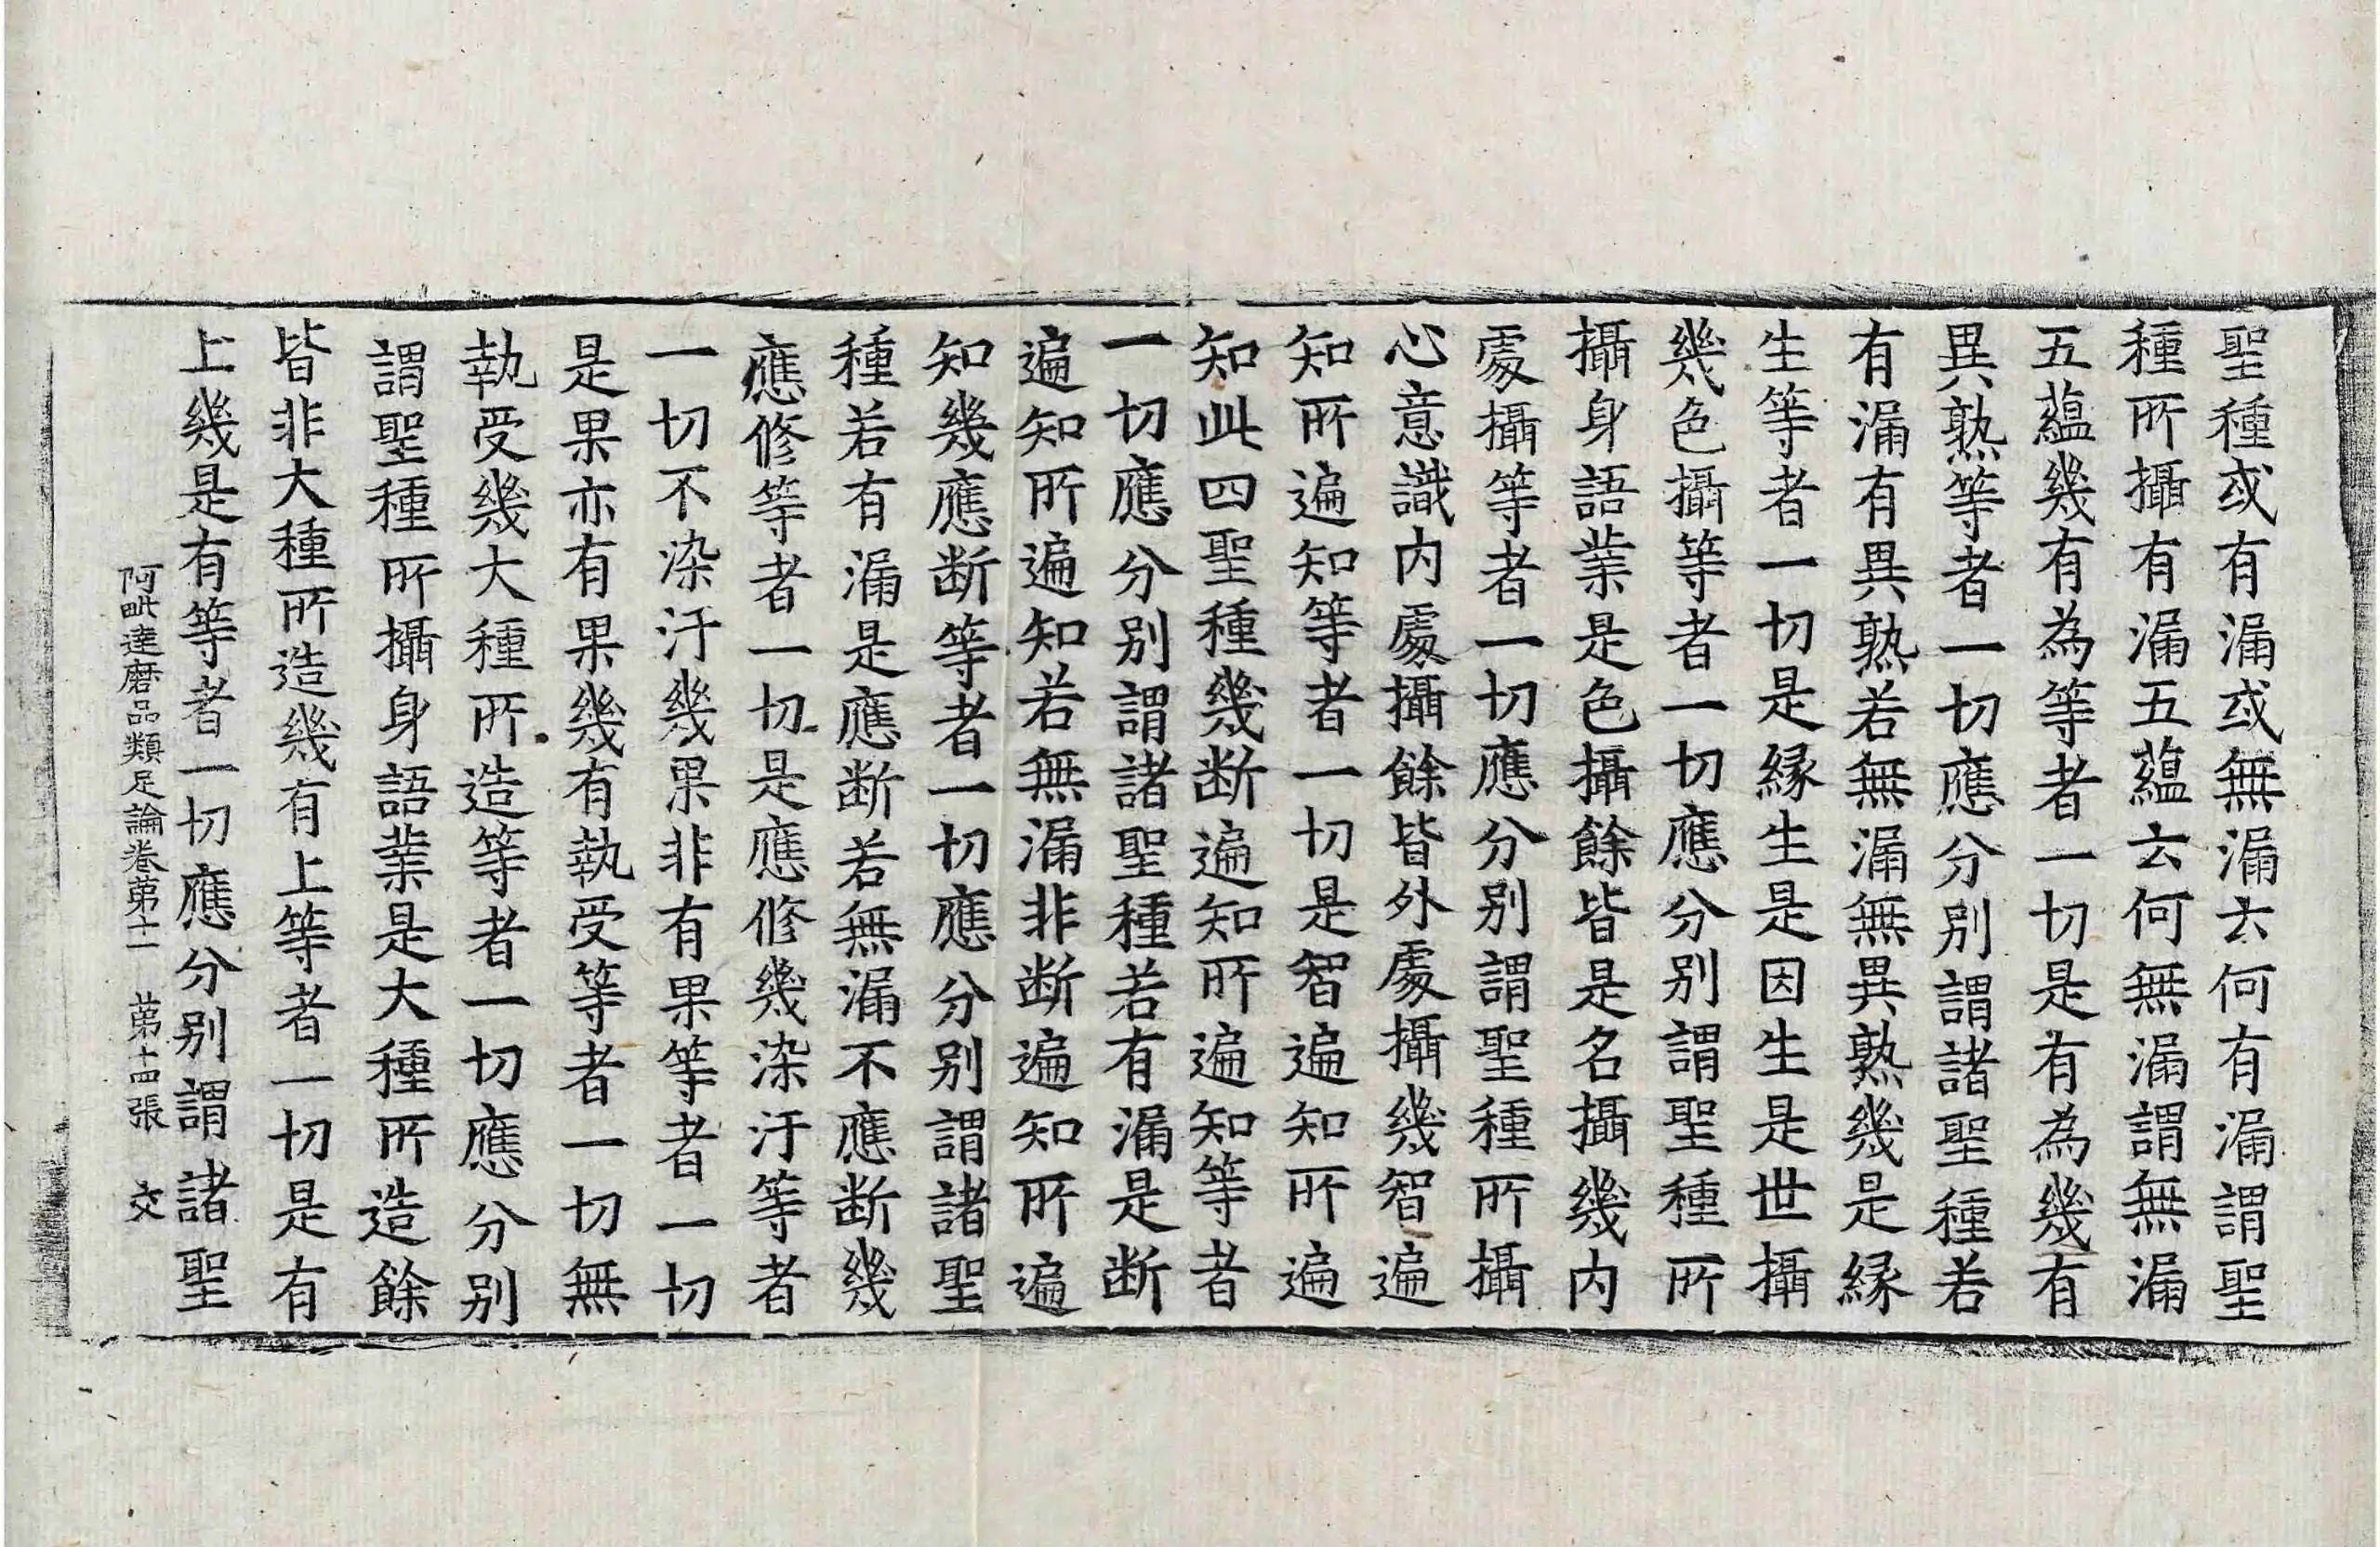 聖種或有漏或無漏云何有漏謂聖
種所攝有漏五蘊云何無漏謂無漏
五蘊幾有為等者一切是有為幾有
異熟等者一切應分別謂諸聖種若
有漏有異熟若無漏無異熟幾是緣
生等者一切是緣生是因生是世攝
幾色攝等者一切應分別謂聖種所
攝身語業是色攝餘皆是名攝幾內
處攝等者一切應分別謂聖種所攝
心意識內處攝餘皆外處攝幾智遍
知所遍知等者一切是智遍知所遍
知此四聖種幾断遍知所遍知等者
一切應分別謂諸聖種若有漏是断
遍知所遍知若無漏非断遍知所遍
知幾應断等者一切應分別謂諸聖
種若有漏是應断若無漏不應断幾
應修等者一切是應修幾染汙等者
一切不染汙幾果非有果等者一切
是果亦有果幾有執受等者一切無
執受幾大種所造等者一切應分別
謂聖種所攝身語業是大種所造餘
皆非大種所造幾有上等者一切是有
上幾是有等者一切應分別謂諸聖
阿毗達磨品類足論卷第十一 第十四張 交